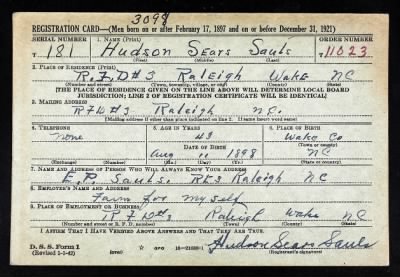 3098
REGISTRATION CARD—(Men born on or after February 17, 1897 and on or before December 31, 1921)
SERIAL NUMBER 1. NAME (Print) ORDER NUMBER
T 181 Hudson Sears Sauls T 11023
(First) (Middle) (Last)
2. PLACE OF RESIDENCE (Print)
R.F.D #3 Raleigh Wake NC
(Number and street) (Town, township, village, or city) (County) (State)
[THE PLACE OF RESIDENCE GIVEN ON THE LINE ABOVE WILL DETERMINE LOCAL BOARD
JURISDICTION; LINE 2 OF REGISTRATION CERTIFICATE WILL BE IDENTICAL]
3. MAILING ADDRESS
RFD #3 Raleigh N.C.
[Mailing address if other than place indicated on line 2. If same insert word same]
4. TELEPHONE 5. AGE IN YEARS 6. PLACE OF BIRTH
none 43 Wake Co
DATE OF BIRTH (Town or county)
Aug 11 1898 NC
(Exchange) (Number) (Mo.) (Day) (Yr.) (State or country)
7. NAME AND ADDRESS OF PERSON WHO WILL ALWAYS KNOW YOUR ADDRESS
E.P. Sauls. Rt 3 Raleigh NC
8. EMPLOYER'S NAME AND ADDRESS
Farm for myself
9. PLACE OF EMPLOYMENT OR BUSINESS
R F D #3 Raleigh Wake NC
(Number and street or R. F. D. number) (Town) (County) (State)
I AFFIRM THAT I HAVE VERIFIED ABOVE ANSWERS AND THAT THEY ARE TRUE.
D. S. S. Form 1
(Revised 1-1-42) (over) Hudson Sears Sauls